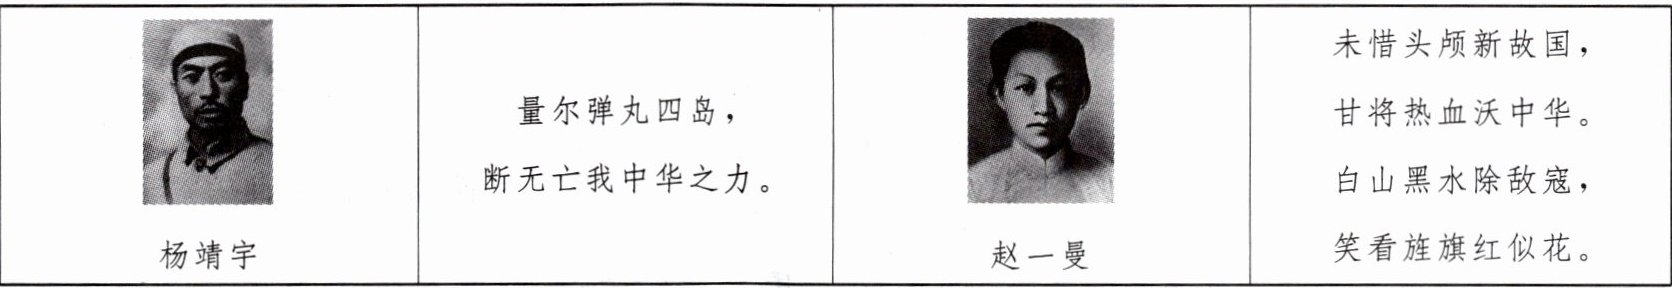 杨靖宇
量尔弹丸四岛，
断无亡我中华之力。
赵一曼
未惜头颅新故国，
甘将热血沃中华。
白山黑水除敌寇，
笑看旌旗红似花。